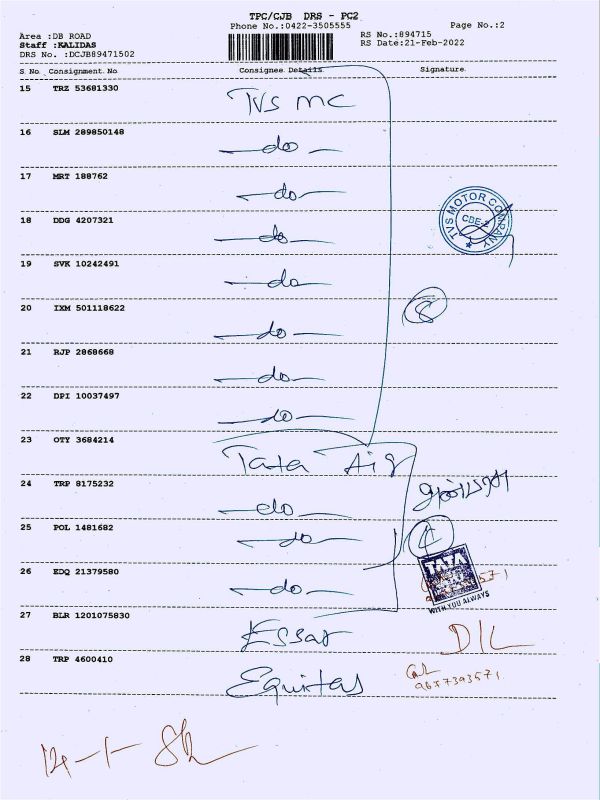 TPC/CJB DRS - PC2
Phone No.:0422-3505555 Page No.:2
Area :DB ROAD RS No.:894715
Staff :KALIDAS RS Date:21-Feb-2022
DRS No. :DCJB89471502
S No Consignment No Consignee Details Signature
15 TRZ 53681330 TVS MC
16 SLM 289850148 -do-
17 MRT 188762 -do-
18 DDG 4207321 -do-
TVS MOTOR COMPANY
CBE-2
19 SVK 10242491 -do-
20 IXM 501118622 -do-
8
21 RJP 2868668 -do-
22 DPI 10037497 -do-
23 OTY 3684214 Tata Aig
24 TRP 8175232 -do-
25 POL 1481682 -do-
4
26 EDQ 21379580 -do-
TATA
WITH YOU ALWAYS
27 BLR 1201075830 Essar
28 TRP 4600410 Equitas
9657393571